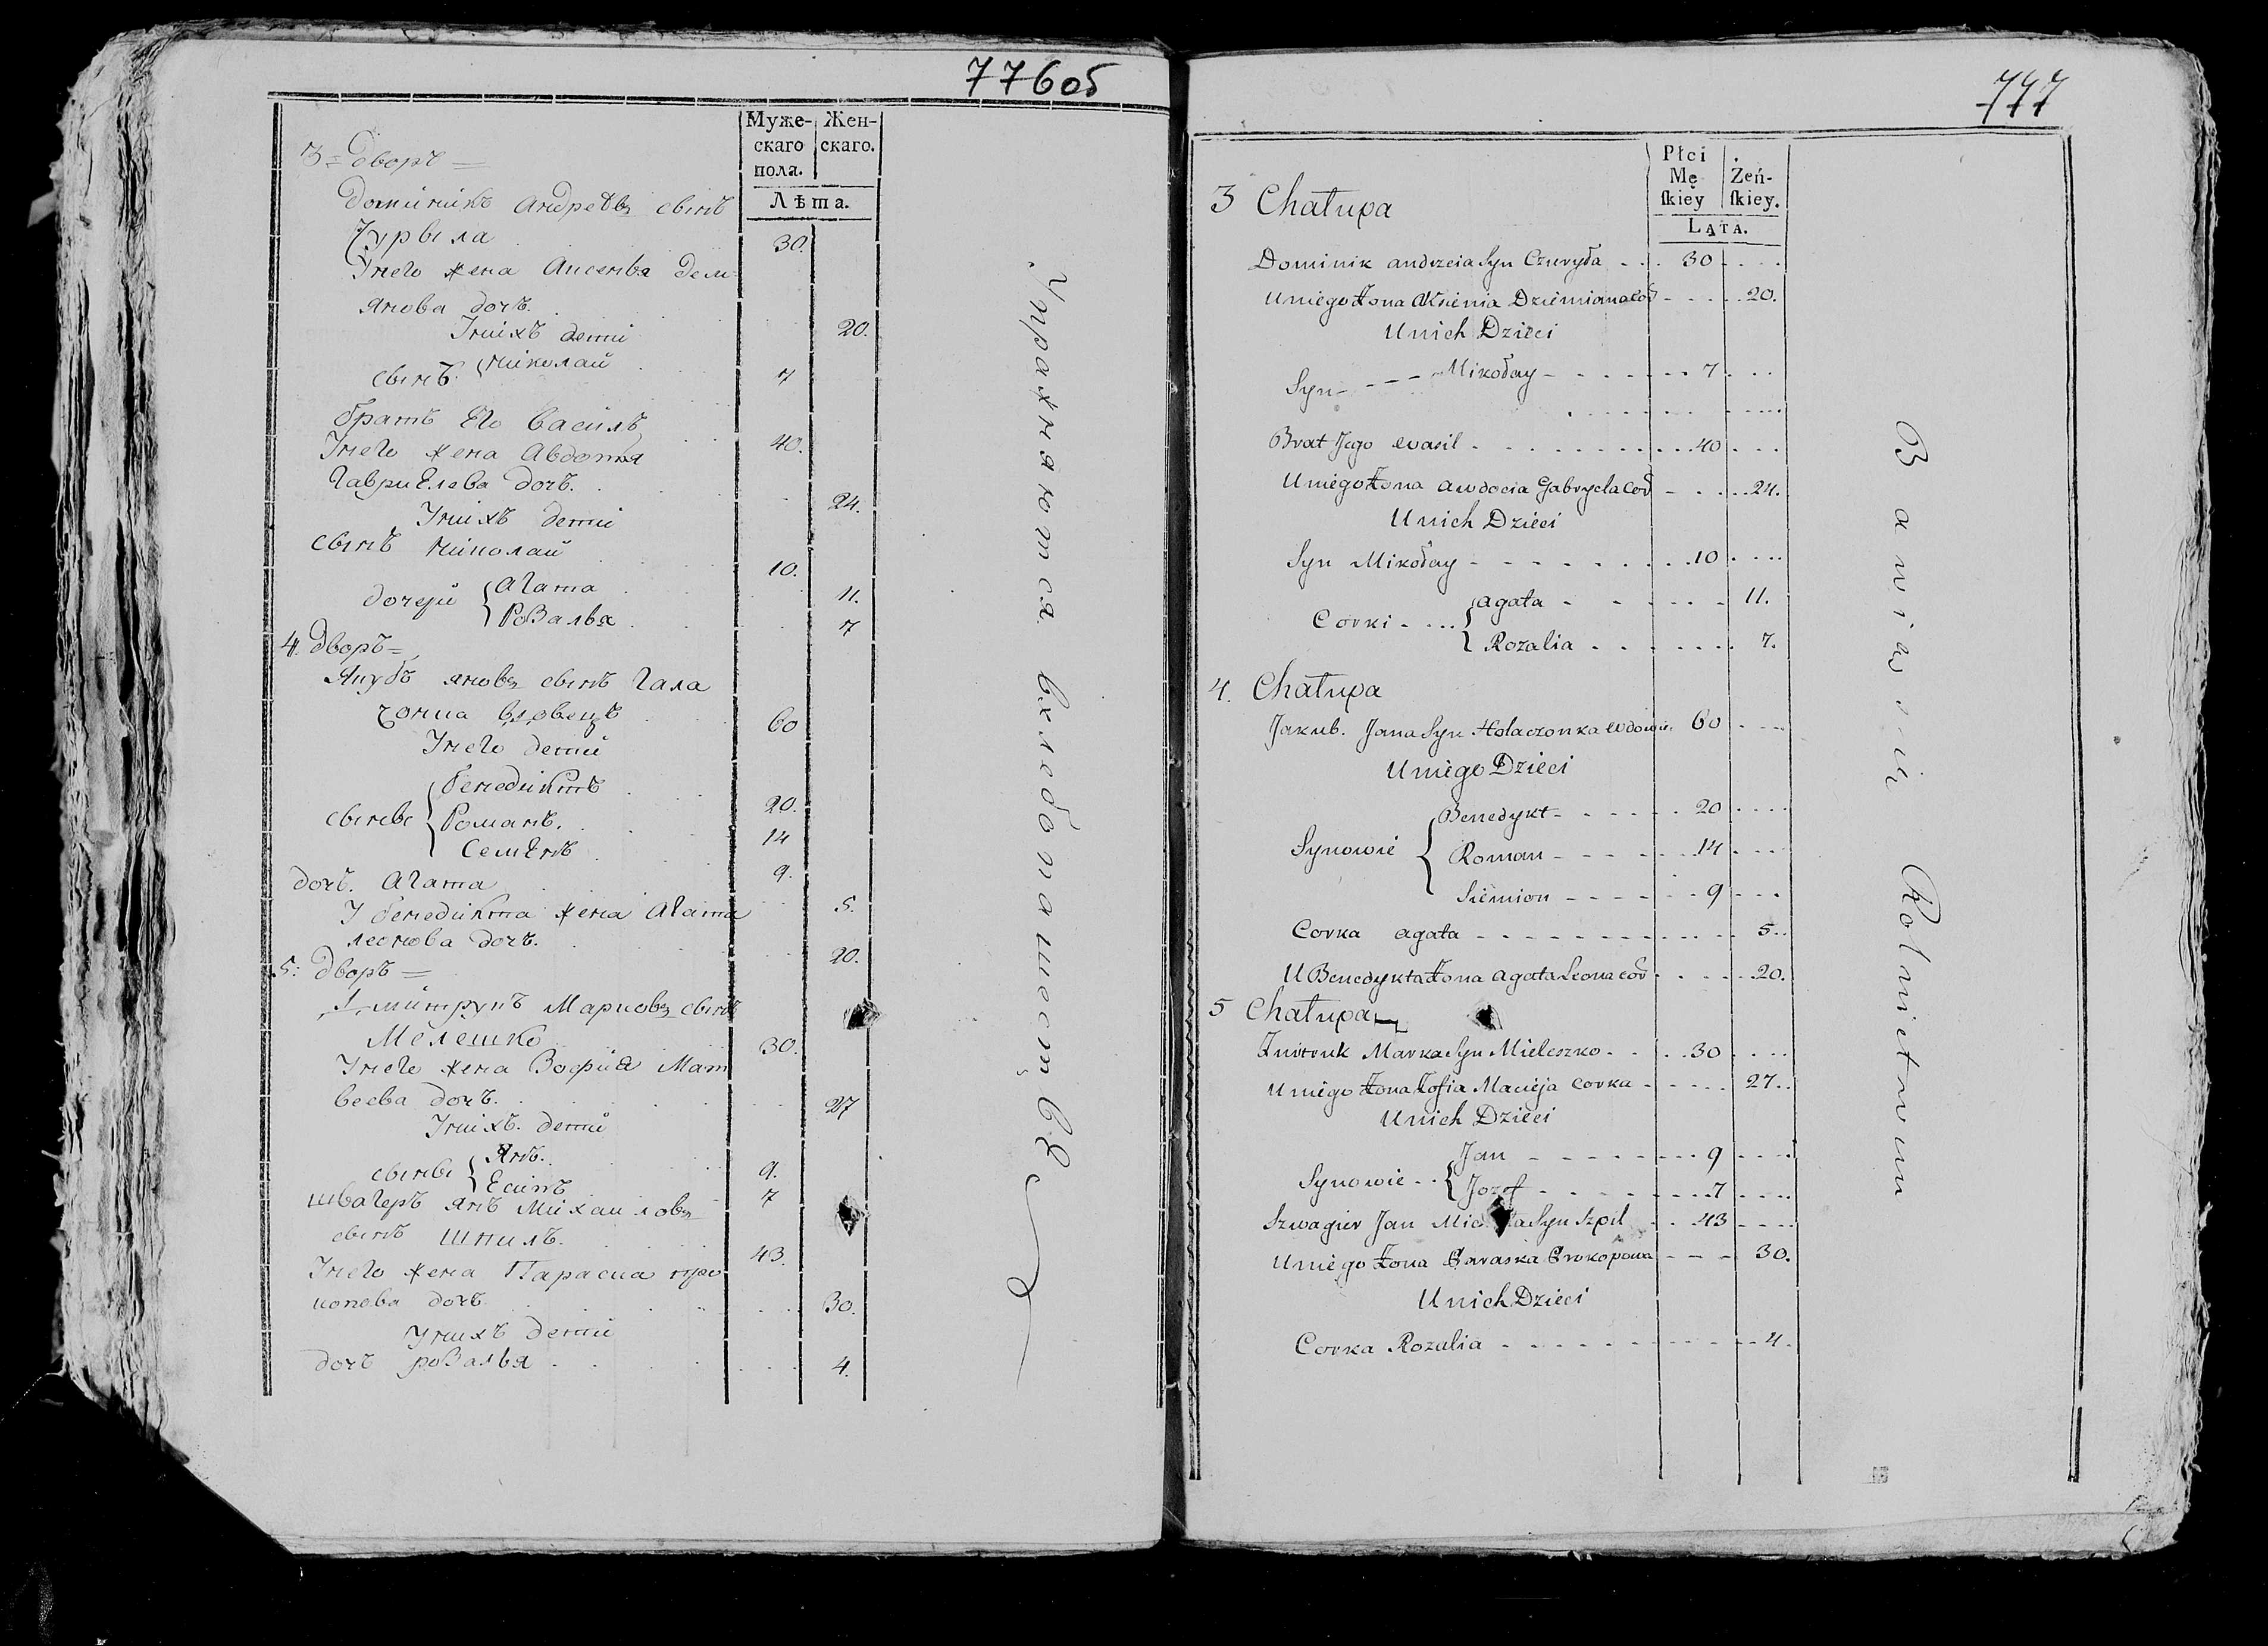 776об
Муже- Жен-
скаго скаго.
пола.
Лѣта.
3 = Дворъ =
Доминикъ Андреевъ сынъ
Чурыла 30.
Унего жена Аксенья Дем
янова дочъ. 20.
Унихъ дети
сынъ { Николай 7
братъ Его Василъ 40.
Унего жена Авдотья
Гавриелева дочъ. 24.
Унихъ дети
сынъ Николай 10.
дочери { Агата 11.
Розалья 7
4. Дворъ =
Якубъ яновъ сынъ Гала
чонка вдовецъ 60
Унего дети
сыны { бенедиктъ 20.
Романъ. 14
Семенъ 9.
дочъ. Агата 5.
У бенедикта жена Агата
леонова дочъ. 20.
5: Дворъ =
Змитрукъ Марковъ сынъ
Мелешко 30.
Унего жена Зофия Мат
веева дочъ. 27
Унихъ. дети
сыны { Янъ. 9.
Есипъ 7
швагеръ янъ Михаиловъ
сынъ Шпилъ. 43.
Унего жена Параска про
копова дочъ 30.
Унихъ дети
дочъ розалья 4.
Упражняются въ хлебопашестве
777
Płci Żeń-
Mę skiey.
skiey
LATA.
3 Chałupa
Dominik andrzeia Syn Czuryła 30
Uniego Żona Aksienia Dziemiana cor 20.
Unich Dzieci
Syn Mikołay 7
Brat Jego wasil 40
Uniego Żona awdocia Gabryela Cor 24.
Unich Dzieci
Syn Mikołay 10
Corki { agata 11.
Rozalia 7.
4. Chałupa
Jakub. Jana Syn Holaczonka wdowie. 60
Uniego Dzieci
Synowie { Benedykt 20
Roman 14
Siemion 9
Corka agata 5
U Benedykta Żona agata Leona cor 20.
5 Chałupa
Zmitruk Marka Syn Mieleszko 30
Uniego Żona Zofia Macieja corka 27.
Unich Dzieci
Synowie { Jan 9
Jozef 7
Szwagier Jan Mic a Syn Szpil 43
Uniego Żona Paraska Prokopowa 30.
Unich Dzieci
Corka Rozalia 4.
Bawio się Rolnictwem